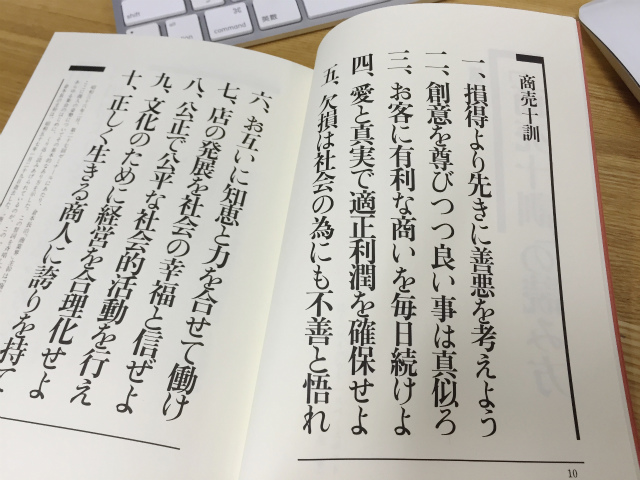 商売十訓
一、損得より先きに善悪を考えよう
二、創意を尊びつつ良い事は真似ろ
三、お客に有利な商いを毎日続けよ
四、愛と真実で適正利潤を確保せよ
五、欠損は社会の為にも不善と悟れ
10
六、お互いに知恵と力を合せて働け
七、店の発展を社会の幸福と信ぜよ
八、公正で公平な社会的活動を行え
九、文化のために経営を合理化せよ
十、正しく生きる商人に誇りを持て
shift
command
英数